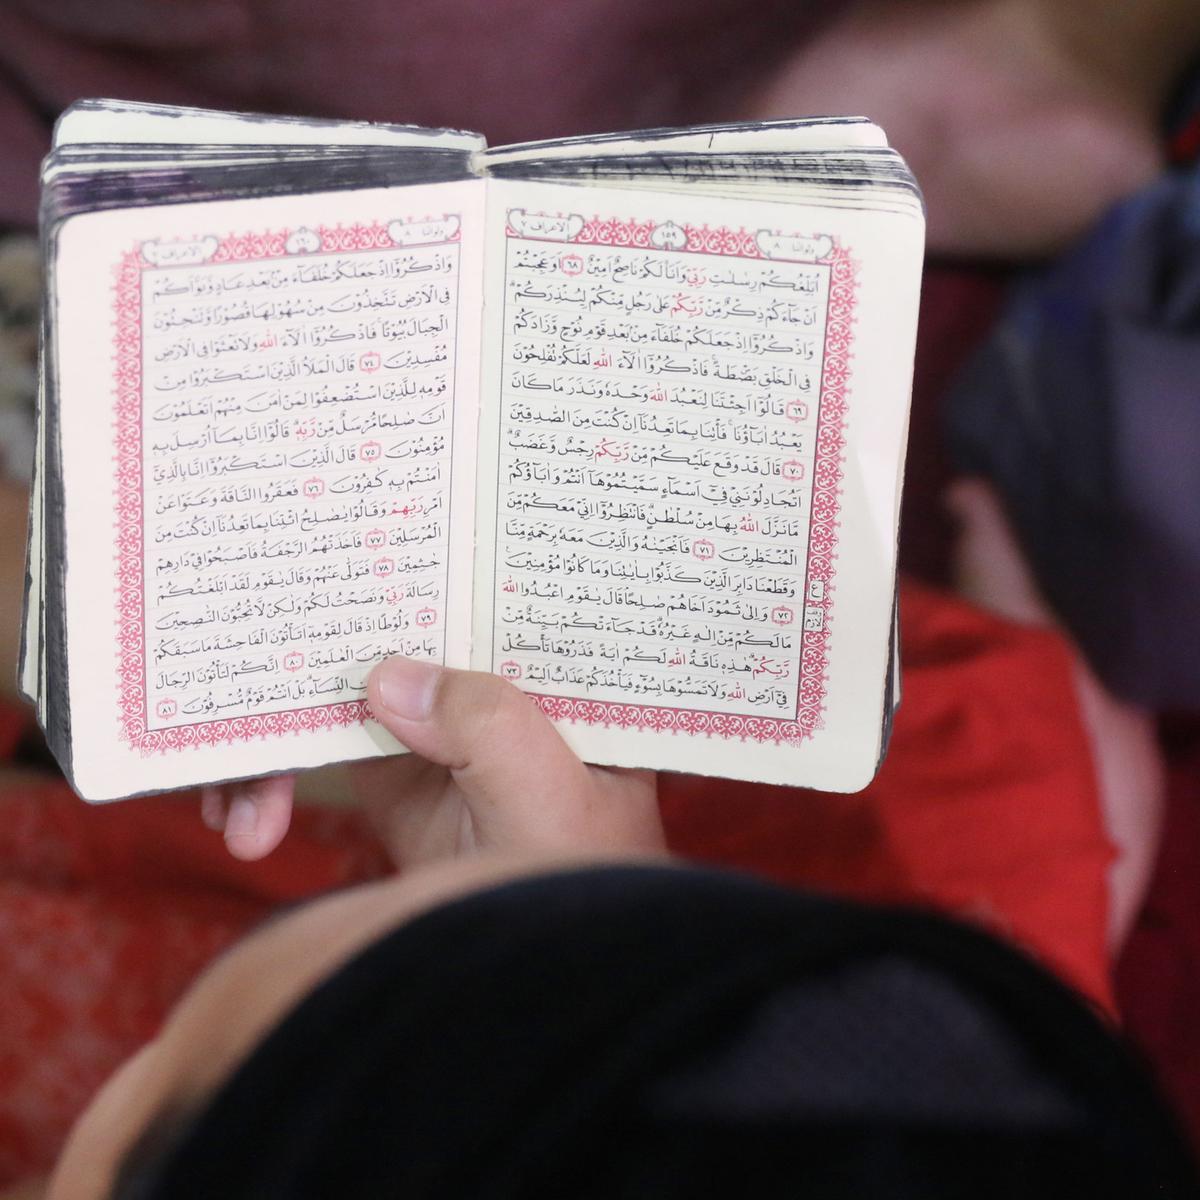 الاعراف ٧
١٥٩
ولواننا ٨
اُبَلِّغُكُمْ رِسٰلٰتِ رَبِّيْ وَاَنَا۠ لَكُمْ نَاصِحٌ اَمِيْنٌ ﴿٦٨﴾ اَوَعَجِبْتُمْ
اَنْ جَاۤءَكُمْ ذِكْرٌ مِّنْ رَّبِّكُمْ عَلٰى رَجُلٍ مِّنْكُمْ لِيُنْذِرَكُمْۗ
وَاذْكُرُوْٓا اِذْ جَعَلَكُمْ خُلَفَاۤءَ مِنْۢ بَعْدِ قَوْمِ نُوْحٍ وَّزَادَكُمْ
فِى الْخَلْقِ بَصْۣطَةً ۚفَاذْكُرُوْٓا اٰلَاۤءَ اللّٰهِ لَعَلَّكُمْ تُفْلِحُوْنَ
﴿٦٩﴾ قَالُوْٓا اَجِئْتَنَا لِنَعْبُدَ اللّٰهَ وَحْدَهٗ وَنَذَرَ مَا كَانَ
يَعْبُدُ اٰبَاۤؤُنَاۚ فَأْتِنَا بِمَا تَعِدُنَآ اِنْ كُنْتَ مِنَ الصّٰدِقِيْنَ
﴿٧٠﴾ قَالَ قَدْ وَقَعَ عَلَيْكُمْ مِّنْ رَّبِّكُمْ رِجْسٌ وَّغَضَبٌۗ
اَتُجَادِلُوْنَنِيْ فِيْٓ اَسْمَاۤءٍ سَمَّيْتُمُوْهَآ اَنْتُمْ وَاٰبَاۤؤُكُمْ
مَّا نَزَّلَ اللّٰهُ بِهَا مِنْ سُلْطٰنٍۗ فَانْتَظِرُوْٓا اِنِّيْ مَعَكُمْ مِّنَ
الْمُنْتَظِرِيْنَ ﴿٧١﴾ فَاَنْجَيْنٰهُ وَالَّذِيْنَ مَعَهٗ بِرَحْمَةٍ مِّنَّا
وَقَطَعْنَا دَابِرَ الَّذِيْنَ كَذَّبُوْا بِاٰيٰتِنَا وَمَا كَانُوْا مُؤْمِنِيْنَ ࣖ
ع
﴿٧٢﴾ وَاِلٰى ثَمُوْدَ اَخَاهُمْ صٰلِحًاۘ قَالَ يٰقَوْمِ اعْبُدُوا اللّٰهَ
وقف لازم
مَا لَكُمْ مِّنْ اِلٰهٍ غَيْرُهٗۗ قَدْ جَاۤءَتْكُمْ بَيِّنَةٌ مِّنْ
رَّبِّكُمْۗ هٰذِهٖ نَاقَةُ اللّٰهِ لَكُمْ اٰيَةً فَذَرُوْهَا تَأْكُلْ
فِيْٓ اَرْضِ اللّٰهِ وَلَا تَمَسُّوْهَا بِسُوْۤءٍ فَيَأْخُذَكُمْ عَذَابٌ اَلِيْمٌ ﴿٧٣﴾
ولواننا ٨
١٦٠
الاعراف ٧
وَاذْكُرُوْٓا اِذْ جَعَلَكُمْ خُلَفَاۤءَ مِنْۢ بَعْدِ عَادٍ وَّبَوَّاَكُمْ
فِى الْاَرْضِ تَتَّخِذُوْنَ مِنْ سُهُوْلِهَا قُصُوْرًا وَّتَنْحِتُوْنَ
الْجِبَالَ بُيُوْتًاۚ فَاذْكُرُوْٓا اٰلَاۤءَ اللّٰهِ وَلَا تَعْثَوْا فِى الْاَرْضِ
مُفْسِدِيْنَ ﴿٧٤﴾ قَالَ الْمَلَاُ الَّذِيْنَ اسْتَكْبَرُوْا مِنْ
قَوْمِهٖ لِلَّذِيْنَ اسْتُضْعِفُوْا لِمَنْ اٰمَنَ مِنْهُمْ اَتَعْلَمُوْنَ
اَنَّ صٰلِحًا مُّرْسَلٌ مِّنْ رَّبِّهٖۗ قَالُوْٓا اِنَّا بِمَآ اُرْسِلَ بِهٖ
مُؤْمِنُوْنَ ﴿٧٥﴾ قَالَ الَّذِيْنَ اسْتَكْبَرُوْٓا اِنَّا بِالَّذِيْٓ
اٰمَنْتُمْ بِهٖ كٰفِرُوْنَ ﴿٧٦﴾ فَعَقَرُوا النَّاقَةَ وَعَتَوْا عَنْ
اَمْرِ رَبِّهِمْ وَقَالُوْا يٰصٰلِحُ ائْتِنَا بِمَا تَعِدُنَآ اِنْ كُنْتَ مِنَ
الْمُرْسَلِيْنَ ﴿٧٧﴾ فَاَخَذَتْهُمُ الرَّجْفَةُ فَاَصْبَحُوْا فِيْ دَارِهِمْ
جٰثِمِيْنَ ﴿٧٨﴾ فَتَوَلّٰى عَنْهُمْ وَقَالَ يٰقَوْمِ لَقَدْ اَبْلَغْتُكُمْ
رِسَالَةَ رَبِّيْ وَنَصَحْتُ لَكُمْ وَلٰكِنْ لَّا تُحِبُّوْنَ النّٰصِحِيْنَ
﴿٧٩﴾ وَلُوْطًا اِذْ قَالَ لِقَوْمِهٖٓ اَتَأْتُوْنَ الْفَاحِشَةَ مَا سَبَقَكُمْ
بِهَا مِنْ اَحَدٍ مِّنَ الْعٰلَمِيْنَ ﴿٨٠﴾ اِنَّكُمْ لَتَأْتُوْنَ الرِّجَالَ
النِّسَاۤءِۗ بَلْ اَنْتُمْ قَوْمٌ مُّسْرِفُوْنَ ﴿٨١﴾